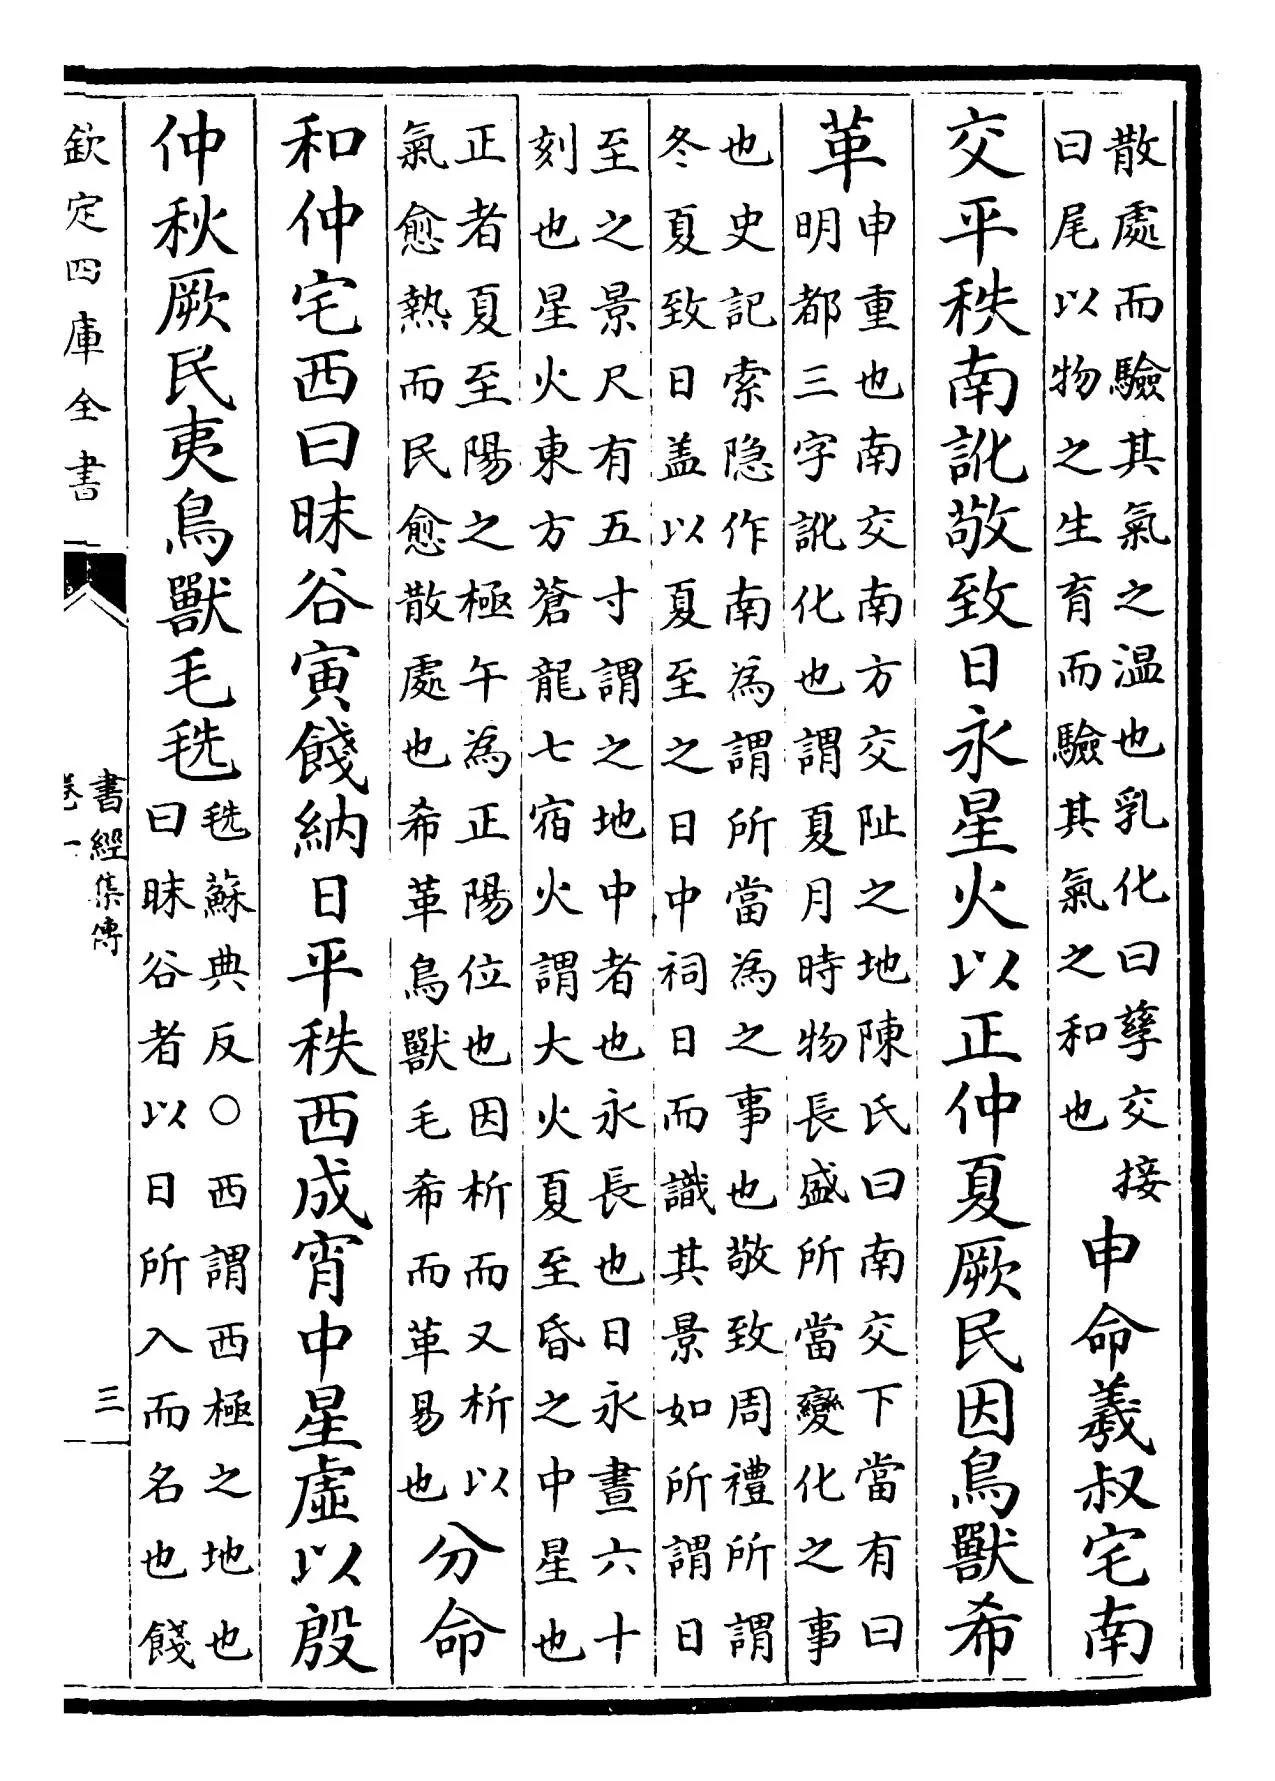 散處而驗其氣之温也乳化曰孳交接
曰尾以物之生育而驗其氣之和也
申命羲叔宅南
交平秩南訛敬致日永星火以正仲夏厥民因鳥獸希
革
申重也南交南方交阯之地陳氏曰南交下當有曰
明都三字訛化也謂夏月時物長盛所當變化之事
也史記索隐作南為謂所當為之事也敬致周禮所謂
冬夏致日盖以夏至之日中祠日而識其景如所謂日
至之景尺有五寸謂之地中者也永長也日永晝六十
刻也星火東方蒼龍七宿火謂大火夏至昏之中星也
正者夏至陽之極午為正陽位也因析而又析以
氣愈熱而民愈散處也希革鳥獸毛希而革易也
分命
和仲宅西曰昧谷寅餞納日平秩西成宵中星虛以殷
仲秋厥民夷鳥獸毛毨
毨蘇典反○西謂西極之地也
曰昧谷者以日所入而名也餞
欽定四庫全書
書經集傳
卷一
三